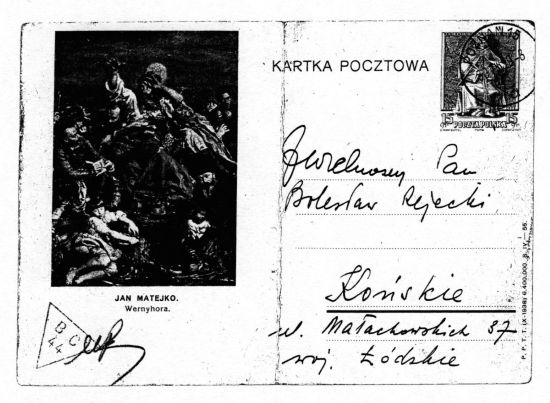 KARTKA POCZTOWA
15 15
POCZTA POLSKA
JWielmożny Pan
Bolesław Rejecki
Końskie
ul. Małachowskich 37
woj. Łódzkie
JAN MATEJKO.
Wernyhora.
B C
44
P. P. T. T. (X-1938) 6.400.000.